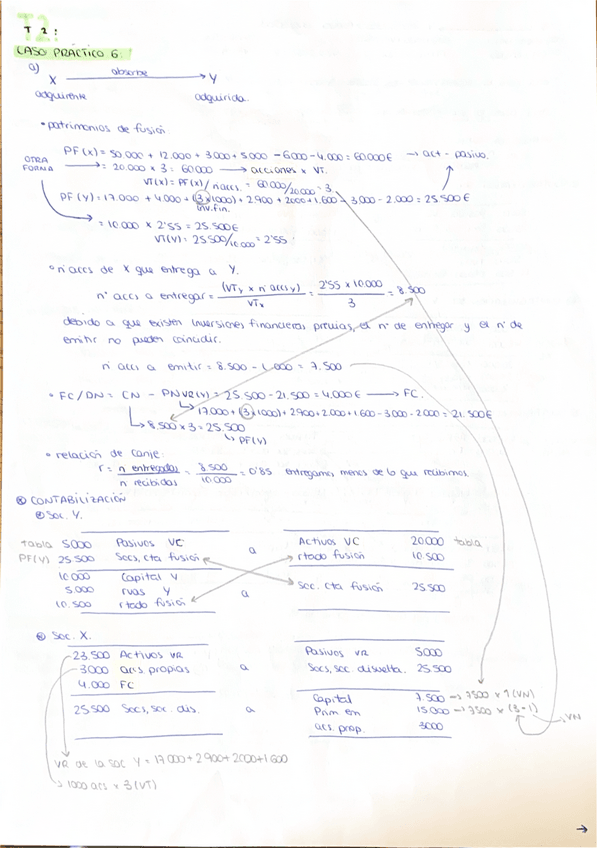 T 2:
CASO PRÁCTICO 6:
a)
X absorbe → Y
adquirente adquirida.
• patrimonios de fusión:
PF(X) = 50.000 + 12.000 + 3.000 + 5.000 - 6.000 - 4.000 = 60.000€ → act - pasivo.
OTRA FORMA → = 20.000 x 3 = 60.000 → acciones x VT.
VT(X) = PF(X)/n accs. = 60.000/20.000 = 3
PF(Y) = 17.000 + 4.000 + (3x1000) + 2.900 + 2.000 + 1.600 - 3.000 - 2.000 = 25.500€
inv. fin.
= 10.000 x 2'55 = 25.500€
VT(Y) = 25.500/10.000 = 2'55
• nº accs de X que entrega a Y.
nº accs a entregar = (VTy x nº accs y)/VTx = 2'55 x 10.000/3 = 8.500
debido a que existen inversiones financieras previas, el nº de entregar y el nº de
emitir no pueden coincidir.
nº accs a emitir = 8.500 - 1.000 = 7.500
• FC/DN = CN - PNVR(Y) = 25.500 - 21.500 = 4.000€ → FC.
17.000 + (3x1000) + 2.900 + 2.000 + 1.600 - 3.000 - 2.000 = 21.500€
8.500 x 3 = 25.500
PF(Y)
• relación de canje:
r = n entregadas/n recibidas = 8.500/10.000 = 0'85 entregamos menos de lo que recibimos.
CONTABILIZACIÓN
Soc. Y.
tabla 5.000 Pasivos VC a Activos VC 20.000 tabla
PF(Y) 25.500 Socs, cta fusión rtado fusión 10.500
10.000 Capital Y
5.000 rvas Y a Soc. cta fusión 25.500
10.500 rtado fusión
Soc. X.
23.500 Activos VR Pasivos VR 5.000
3.000 accs. propias a Socs, soc. disuelta. 25.500
4.000 FC
25.500 Socs, soc. dis. a Capital 7.500 → 7500 x 1 (VN)
Prim em 15.000 → 7500 x (3-1) → VN
acs. prop. 3000
VR de la soc Y = 17.000 + 2.900 + 2.000 + 1.600
1000 acs x 3 (VT)
→